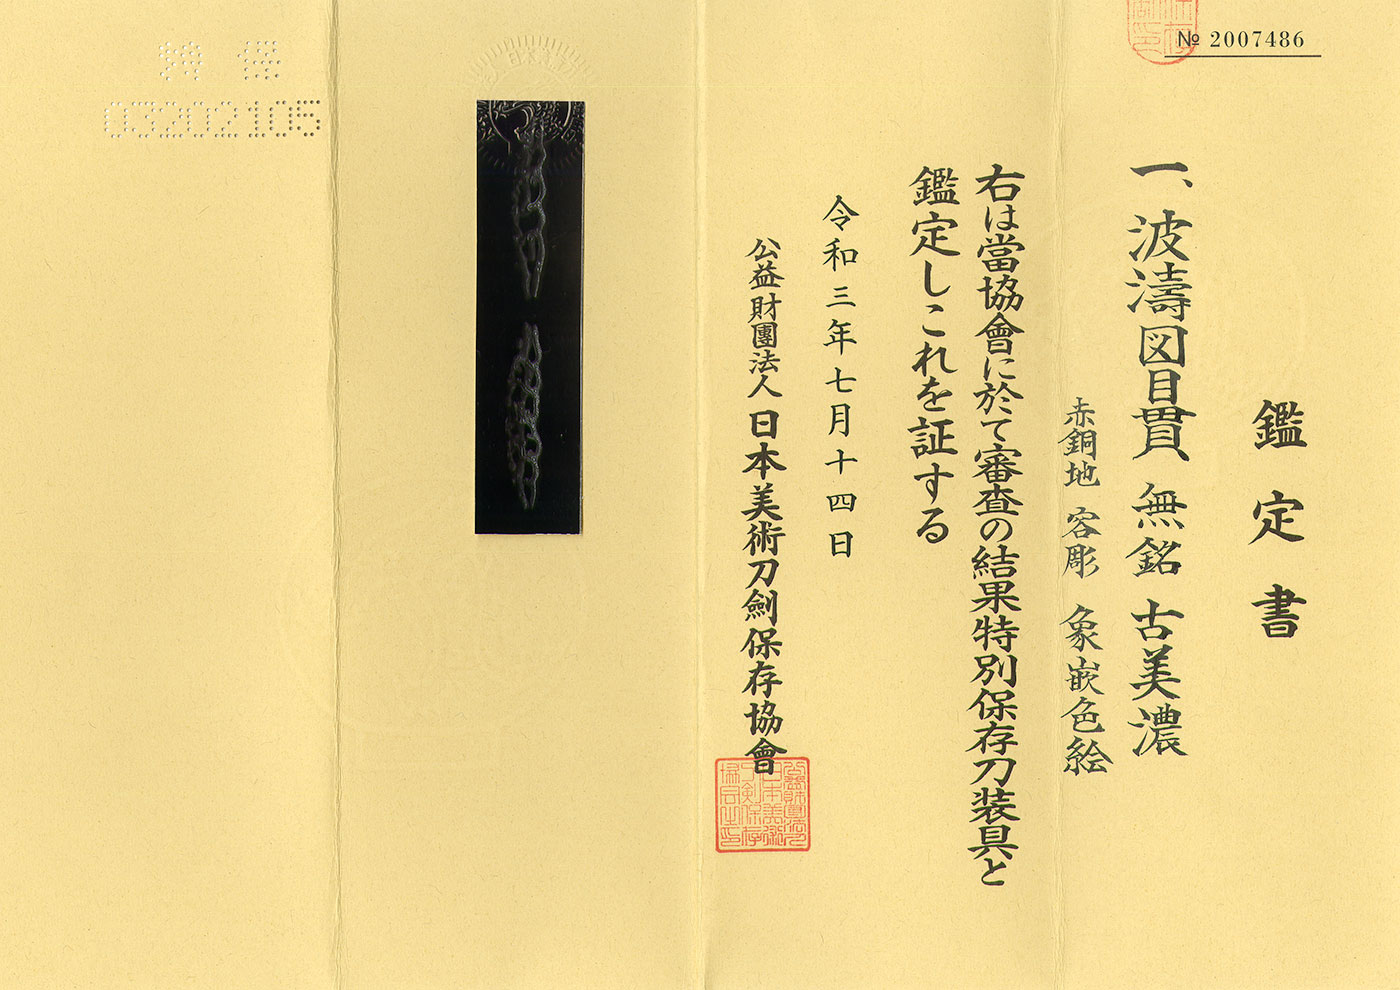 № 2007486
鑑定書
一、波濤図目貫 無銘 古美濃
赤銅地 容彫 象嵌色絵
右は當協會に於て審査の結果特別保存刀装具と
鑑定しこれを証する
令和三年七月十四日
公益財團法人 日本美術刀劍保存協會
03202105